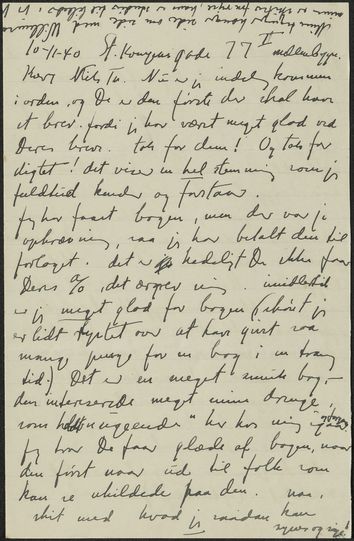 10-11-40 St. Kongensgade 77 I mellembygn.
Kære Niels Th. Nu er jeg endelig kommen
i orden, og De er den første der skal have
et brev. fordi jeg har været meget glad ved
Deres breve. tak for dem! Og tak for
digtet! det viser en hel stemning som jeg
fuldtud kender og forstaar.
Jeg har faaet bogen, men der var jo
opkrævning, saa jeg har betalt den til
forlaget. det er jo kedeligt De ikke faar
Deres %, det ærgrer mig. imidlertid
er jeg meget glad for bogen (skönt jeg
er lidt rystet over at have givet saa
mange penge for en bog i en trang
tid!) Det er en meget smuk bog,
den interesserede meget mine drenge
som "ungeende" her hos mig
Jeg tror De faar glæde af bogen, naar
den först naar ud til folk som
kan se uhildede paa den. naa,
skit med hvad jeg saadan kan
synes og sige!